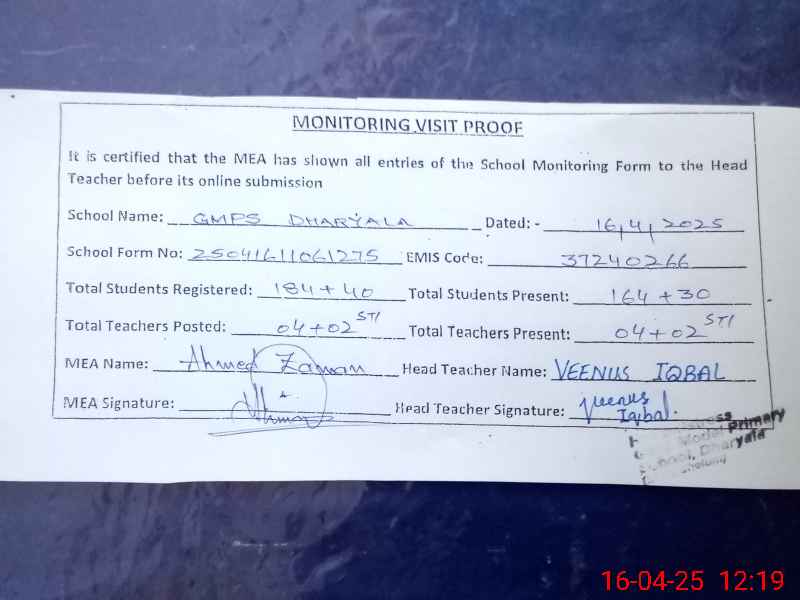 MONITORING VISIT PROOF
It is certified that the MEA has shown all entries of the School Monitoring Form to the Head
Teacher before its online submission
School Name: GMPS DHARYALA Dated: - 16,4,2025
School Form No: 25041611061275 EMIS Code: 37240266
Total Students Registered: 184+40 Total Students Present: 164+30
Total Teachers Posted: 04+02 STI Total Teachers Present: 04+02 STI
MEA Name: Ahmed Zaman Head Teacher Name: VEENUS IQBAL
MEA Signature: Head Teacher Signature: Veenus
Iqbal.
Model Primary
School, Dharyala
16-04-25 12:19